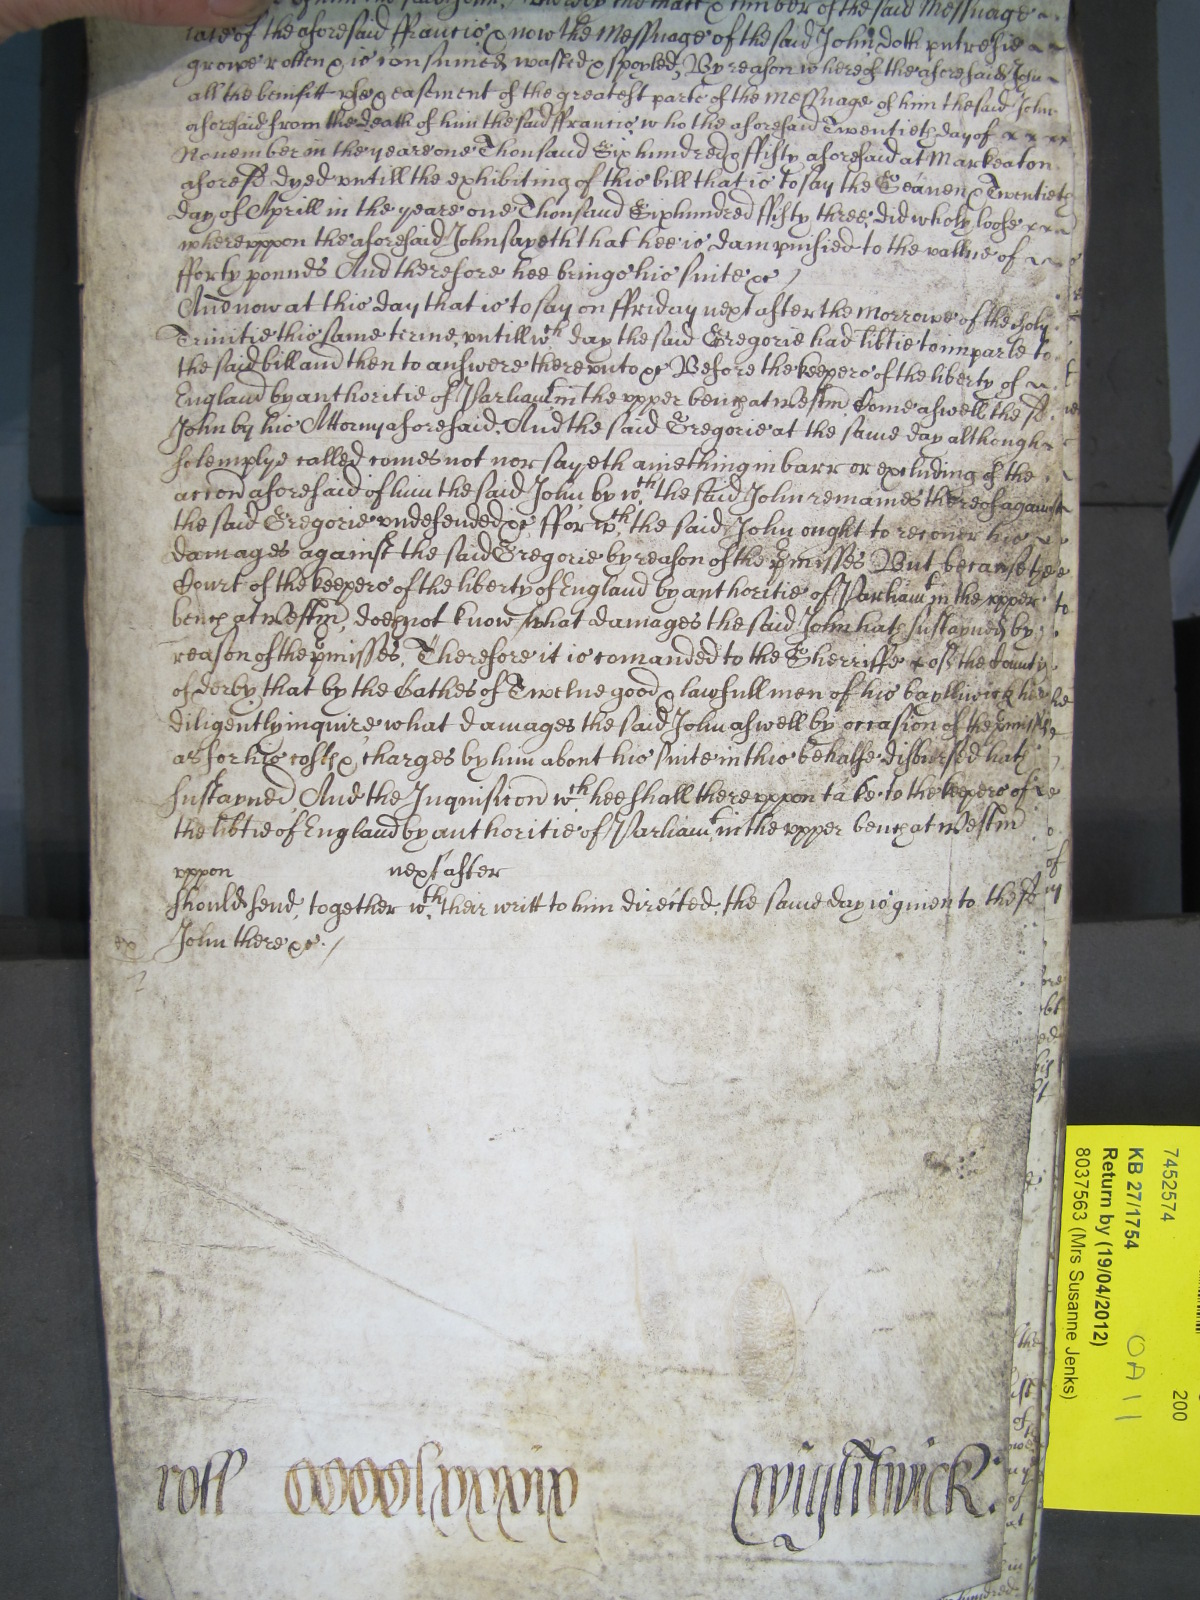 of the said Messuage
late of the aforesaid ffrancis & now the Messuage of the said John doth putrefie
growe rotten & is consumed wasted & spoyled, By reason whereof the aforesaid John
all the benifitt use & easement of the greatest parte of the Messuage of him the said John
aforesaid from the death of him the said ffrancis who the aforesaid Twentieth day of
November in the yeare one Thousand Six hundred & ffifty aforesaid at Markeaton
aforesd dyed untill the exhibiting of this bill that is to say the Seaven & Twentieth
day of Aprill in the yeare one Thousand Six hundred ffifty three, did wholy loose
whereuppon the aforesaid John sayeth that hee is dampnified to the vallue of
fforty pounds And therefore hee brings his suite &c
And now at this day that is to say on ffriday next after the Morrowe of the Holy
Trinitie this same terme, untill wch day the said Gregorie had libtie to imparle to
the said bill and then to answere thereunto &c Before the keepers of the liberty of
England by authoritie of Parliamt in the upper bench at Westm Come aswell the sd
John by his Attorny aforesaid. And the said Gregorie at the same day although
solemplye called comes not nor sayeth aniething in barr or excluding of the
accon aforesaid of him the said John by wch the said John remaines thereof against
the said Gregorie undefended &c ffor wch the said John ought to recover his
damages against the said Gregorie by reason of the pmisses But because the
Court of the keepers of the liberty of England by authoritie of Parliamt in the upper
bench at Westm, does not know what damages the said John hath sustayned by
reason of the pmisses, Therefore it is comanded to the Sherriffe of the County
of Derby that by the Oathes of Twelve good & lawfull men of his bayliwick hee
diligently inquire what damages the said John aswell by occasion of the pmisses
as for his costs & charges by him about his suite in this behalfe disbursed hath
sustayned And the Inquisicon wch hee shall thereuppon take to the keepers of
the libtie of England by authoritie of Parliamt in the upper bench at Westm
uppon next after
should send, together wth their writt to him directed, the same day is given to the sd
John there &c.
roll CCCClxxxxix Wightwick.
7452574
200
KB 27/1754
Return by (19/04/2012)
8037563 (Mrs Susanne Jenks)
OA 11